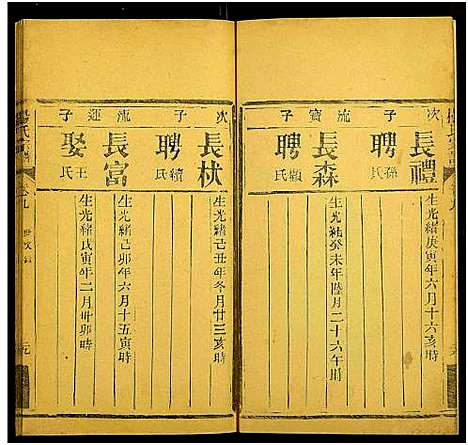 次子
長禮
聘孫氏
生光緒庚寅年六月十六亥時
流寶子
長森
聘顏氏
生光緒癸未年陸月二十六午時
次子
長栿
聘續氏
生光緒己丑年冬月廿三亥時
流運子
長富
娶王氏
生光緒己卯年六月十五寅時
生光緒戊寅年二月廿卯時